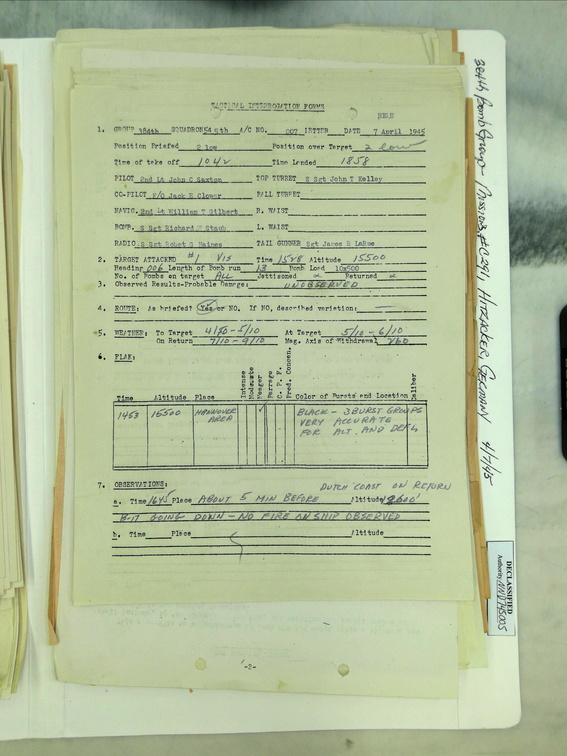 TACTICAL INTERROGATION FORMS
1. GROUP 384th SQUADRON 545th A/C NO. 007 LETTER DATE 7 April 1945
Position Briefed 2 low Position over Target 2 low
Time of take off 1042 Time Landed 1858
PILOT 2nd Lt John C Saxton TOP TURRET S Sgt John T Kelley
CO-PILOT F/O Jack E Clower BALL TURRET
NAVIG. 2nd Lt William T Gilbert R. WAIST
BOMB. S Sgt Richard M Staub L. WAIST
RADIO S Sgt Robert G Haines TAIL GUNNER Sgt James B LaRue
2. TARGET ATTACKED #1 VIS Time 1528 Altitude 15500
Heading 006 Length of Bomb run 13 Bomb Load 10x500
No. of Bombs on target ALL Jettisoned Returned
3. Observed Results-Probable Damage: UNOBSERVED
4. ROUTE: As briefed? Yes or NO. If NO, described variation:
5. WEATHER: To Target 4/10-5/10 At Target 5/10-6/10
On Return 7/10-9/10 Mag. Axis of Withdrawal 260
6. FLAK:
Time Altitude Place Intense Moderate Meager Barrage C.P.F. Pred. Concen. Color of Bursts and Location Caliber
1453 15500 HANNOVER BLACK - 3 BURST GROUPS
AREA VERY ACCURATE
FOR ALT. AND DEFL
7. OBSERVATIONS: DUTCH COAST ON RETURN
a. Time 1645 Place ABOUT 5 MIN BEFORE Altitude
B-17 GOING DOWN - NO FIRE ON SHIP OBSERVED
b. Time Place Altitude
-2-
384th Bomb Group - Missions #C291, HITZACKER, GERMANY 4/7/45
DECLASSIFIED
Authority NND 745005